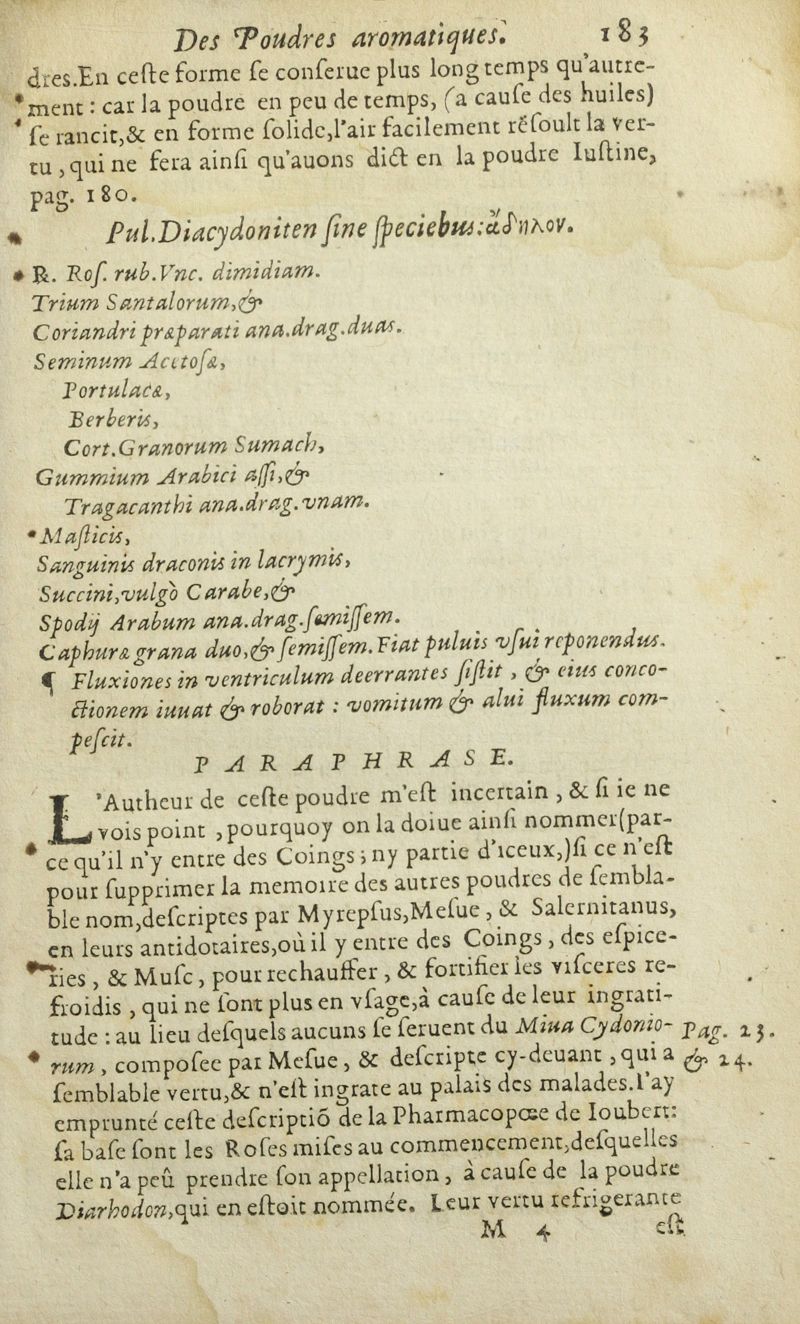 Des Poudres aromatiques. 183
dres.En ceſte forme ſe conſerue plus long temps qu'autre-
*ment : car la poudre en peu de temps, (a cauſe des huiles)
* ſe rancit,& en forme ſolide,l'air facilement rẽſoult la ver-
tu , qui ne ſera ainſi qu'auons dict en la poudre Iuſtine,
pag. 180.
* Pul.Diacydoniten ſine ſpeciebus:ἄδηλον.
* ℞. Roſ. rub.Vnc. dimidiam.
Trium Santalorum,&
Coriandri præparati ana.drag.duas.
Seminum Acetoſæ,
Portulacæ,
Berberis,
Cort.Granorum Sumach,
Gummium Arabici aſſi,&
Tragacanthi ana.drag.vnam.
*Maſticis,
Sanguinis draconis in lacrymis,
Succini,vulgò Carabe,&
Spodij Arabum ana.drag.ſemiſſem.
Caphuræ grana duo,& ſemiſſem.Fiat puluis vſui reponendus.
¶ Fluxiones in ventriculum deerrantes ſiſtit , & eius conco-
ctionem iuuat & roborat : vomitum & alui fluxum com-
peſcit.
PARAPHRASE.
L'Autheur de ceſte poudre m'eſt incertain , & ſi ie ne
vois point , pourquoy on la doiue ainſi nommer(par-
* ce qu'il n'y entre des Coings ; ny partie d'iceux,)ſi ce n'eſt
pour ſupprimer la memoire des autres poudres de ſembla-
ble nom,deſcriptes par Myrepſus,Meſue , & Salernitanus,
en leurs antidotaires,où il y entre des Coings , des eſpice-
*ries , & Muſc , pour rechauffer , & fortifier les viſceres re-
froidis , qui ne ſont plus en vſage,à cauſe de leur ingrati-
tude : au lieu deſquels aucuns ſe ſeruent du Miua Cydonio- Pag. 23.
* rum , compoſee par Meſue , & deſcripte cy-deuant , qui a & 24.
ſemblable vertu,& n'eſt ingrate au palais des malades.I'ay
emprunté ceſte deſcriptiõ de la Pharmacopœe de Ioubert:
ſa baſe ſont les Roſes miſes au commencement,deſquelles
elle n'a peû prendre ſon appellation , à cauſe de la poudre
Diarhodon,qui en eſtoit nommée. Leur vertu refrigerante
M 4 eſt